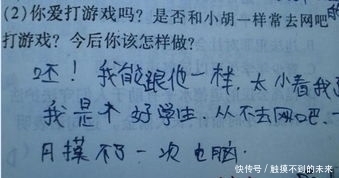 (2)你爱打游戏吗?是否和小胡一样常去网吧
打游戏?今后你该怎样做?
呸!我能跟他一样,太小看我
我是个好学生.从不去网吧.一
月摸不了一次电脑.
快传号/触摸不到的未来